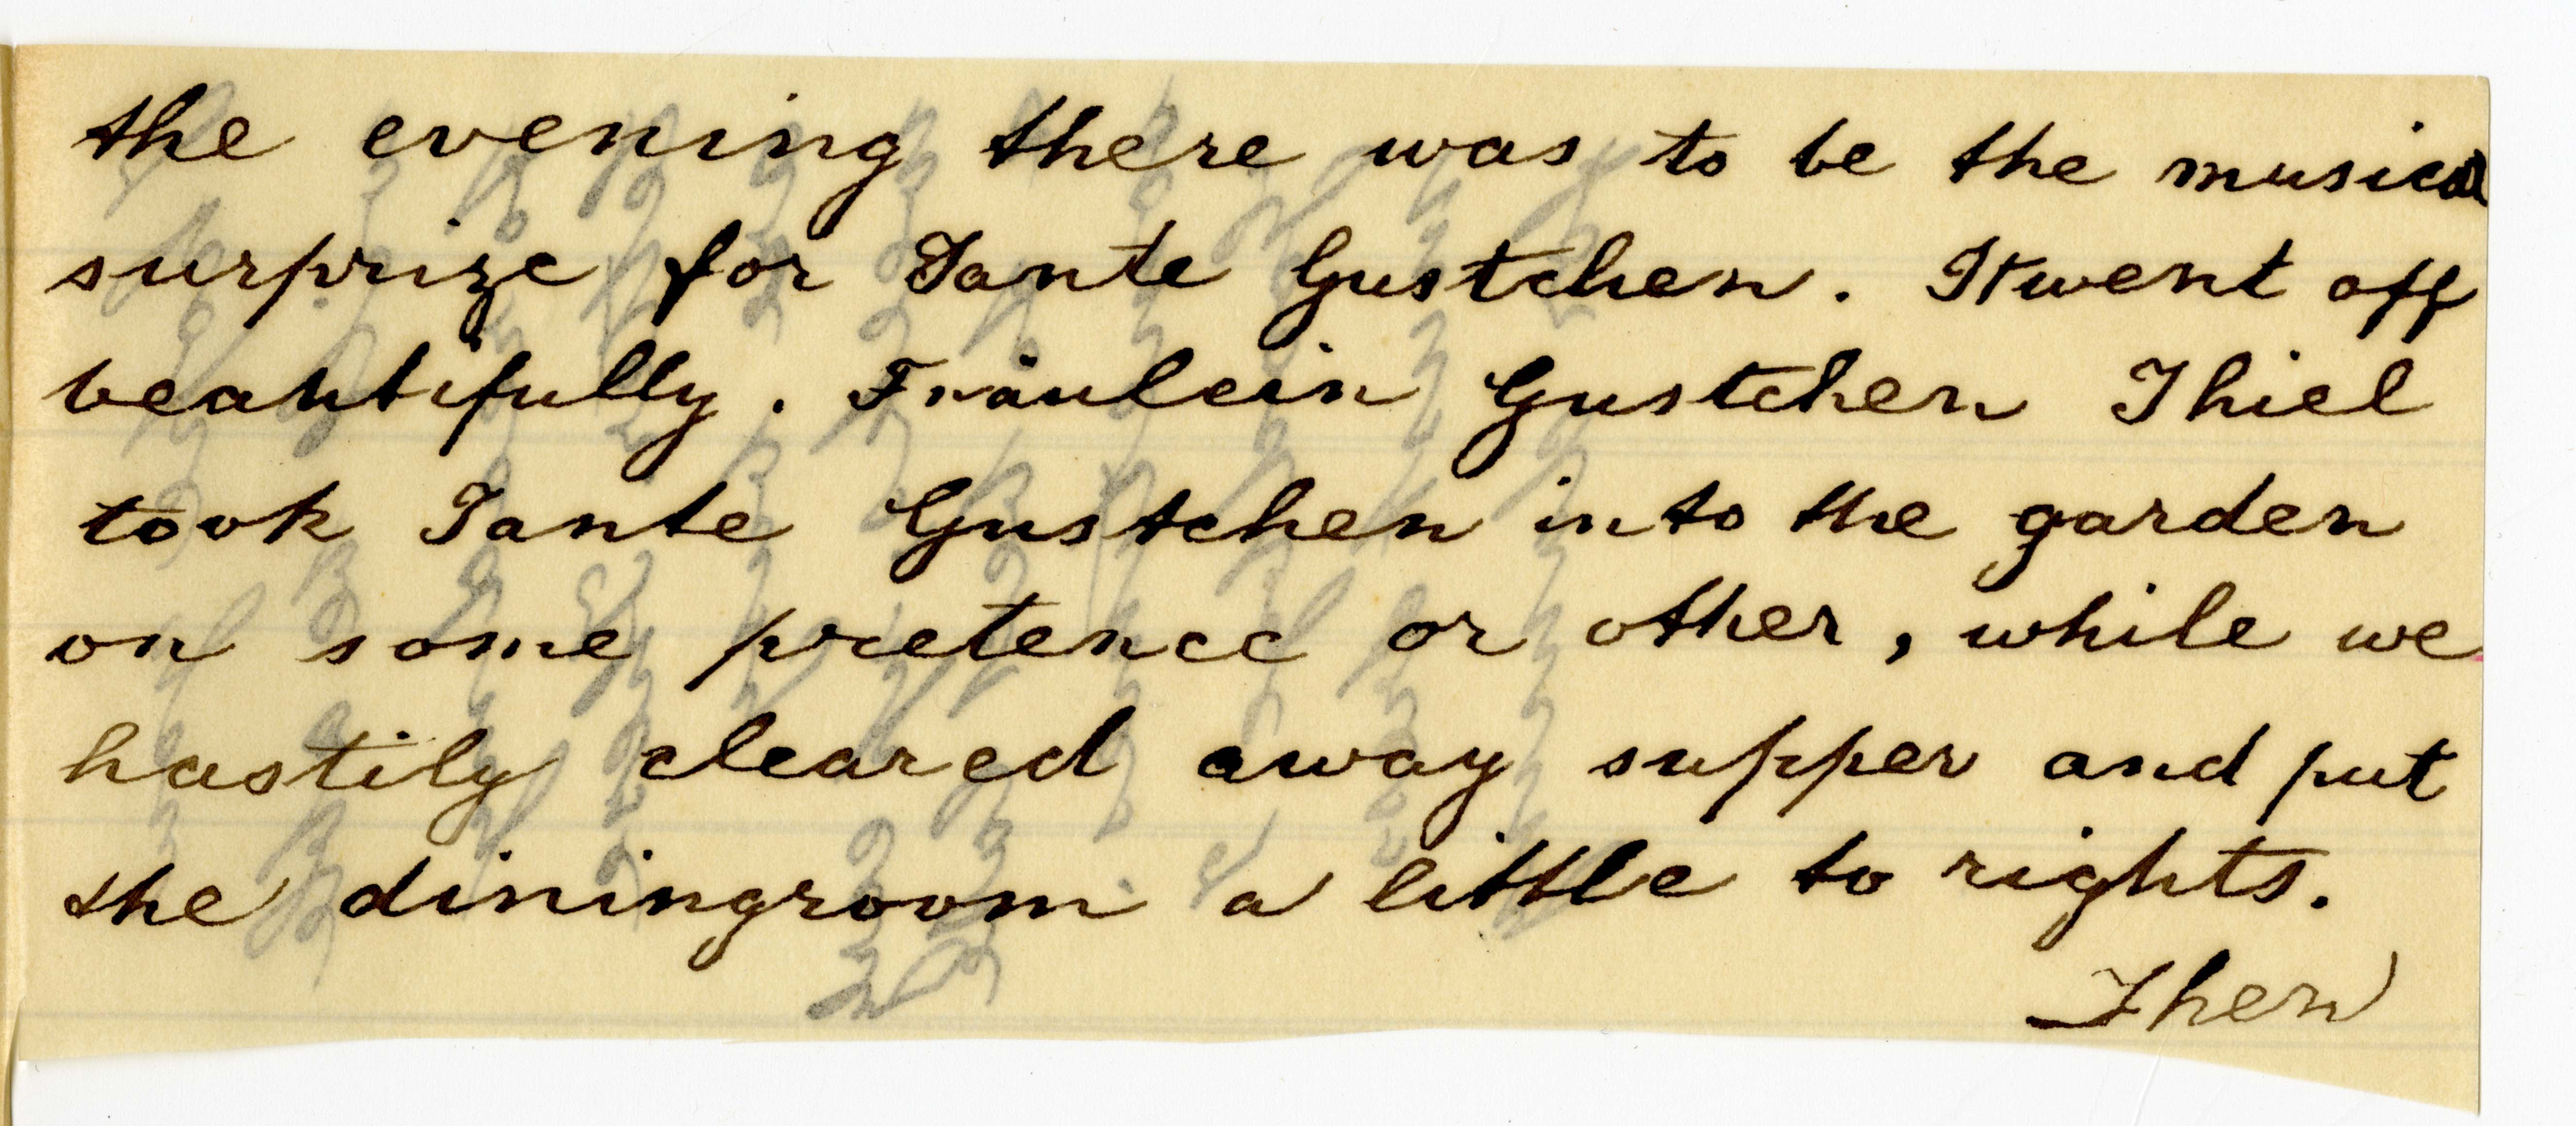 the evening there was to be the musical
surprize for Tante Gustchen. It went off
beautifully. Fräulein Gustchen Thiel
took Tante Gustchen into the garden
on some pretence or other, while we
hastily cleared away supper and put
the diningroom a little to rights.
Then